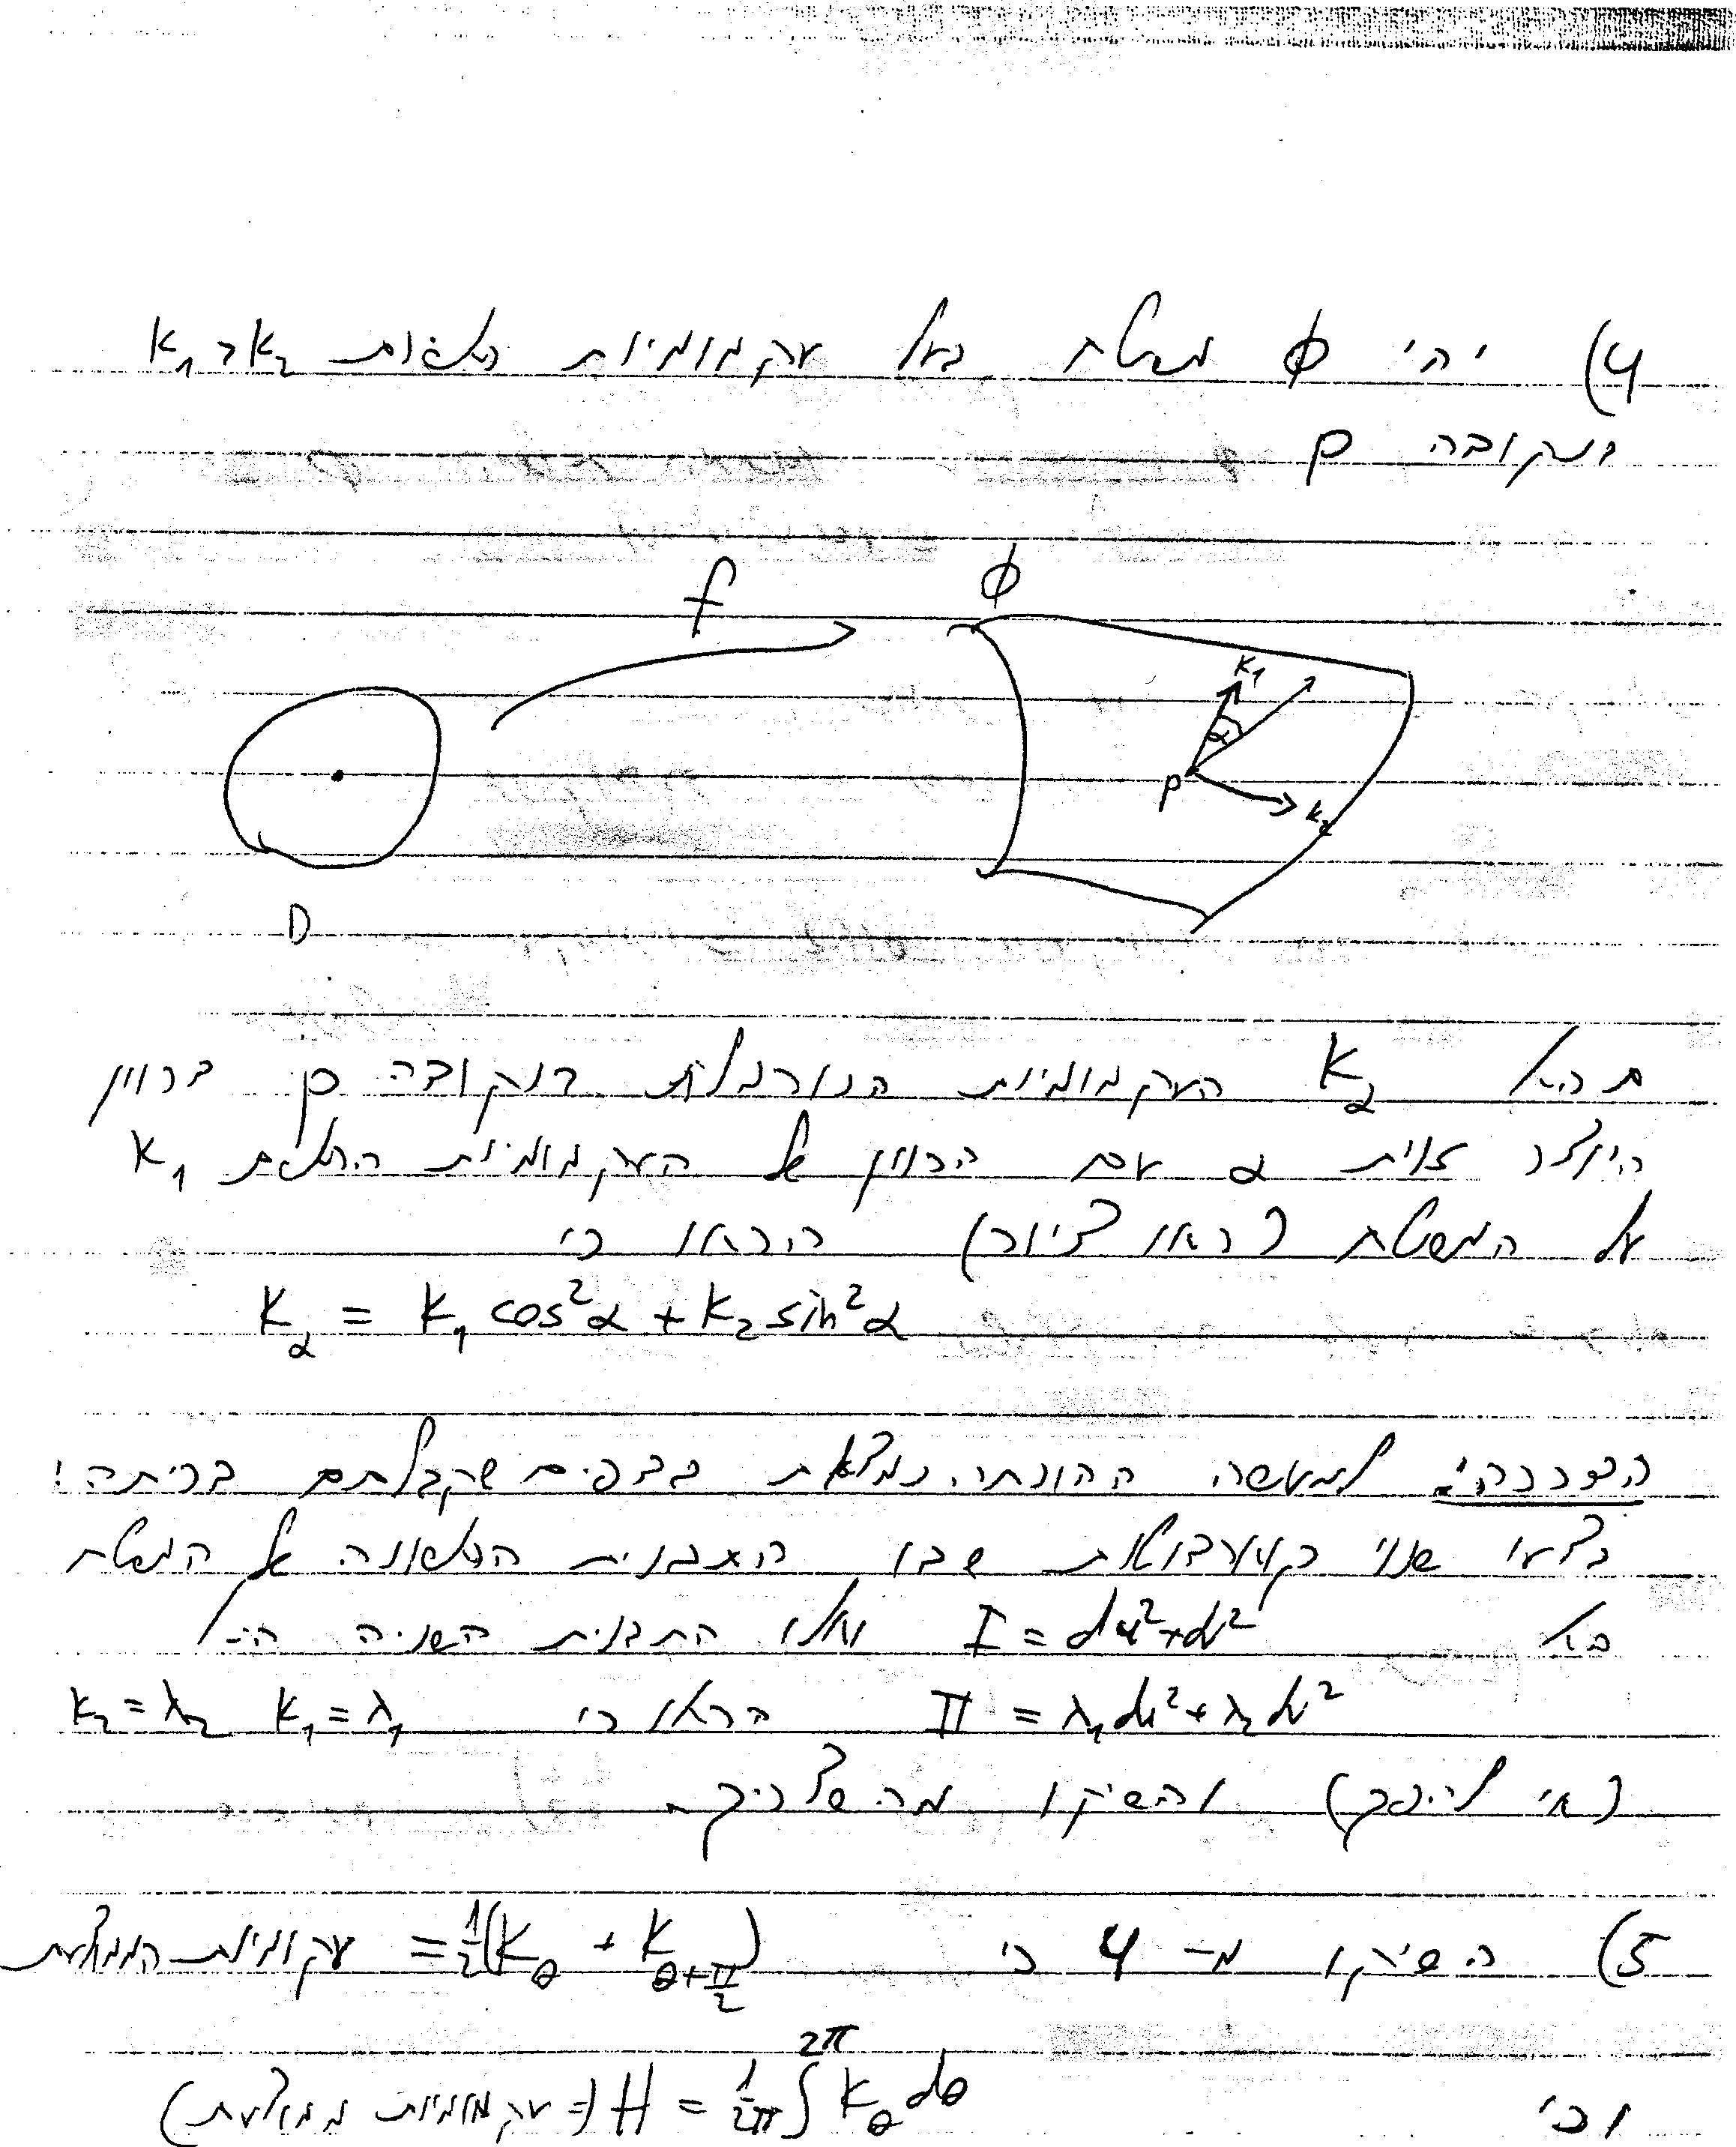 4) יהי ϕ משטח בעל עקמומיות ראשיות k₂ ו k₁
בנקובה p
f
ϕ
k₁
α
p
k₂
D
תהא K_α העקמומיות הנורמלית בנקובה p בכוון
היוצר זוית α עם הכוון של העקמומיות הראשית k₁
על המשטח (ראו ציור) הראו כי
K_α = k₁ cos²α + k₂ sin²α
למעשה ההוכחה נמצאת בדפים שקבלתם בכיתה!
בצעו שנוי קואורדינאטות שבו התבנית הראשונה של המשטח
היא I = du²+dv² ואלו התבנית השניה היא
II = λ₁du²+λ₂dv² הראו כי k₁=λ₁ k₂=λ₂
(או להיפך) והסיקו מה שצריך.
5) הסיקו מ- 4 כי ½(K_θ + K_{θ+π/2}) = עקמומיות הממוצעת
וכי H = 1/2π ∫^{2π} K_θ dθ (= עקמומיות ממוצעת)